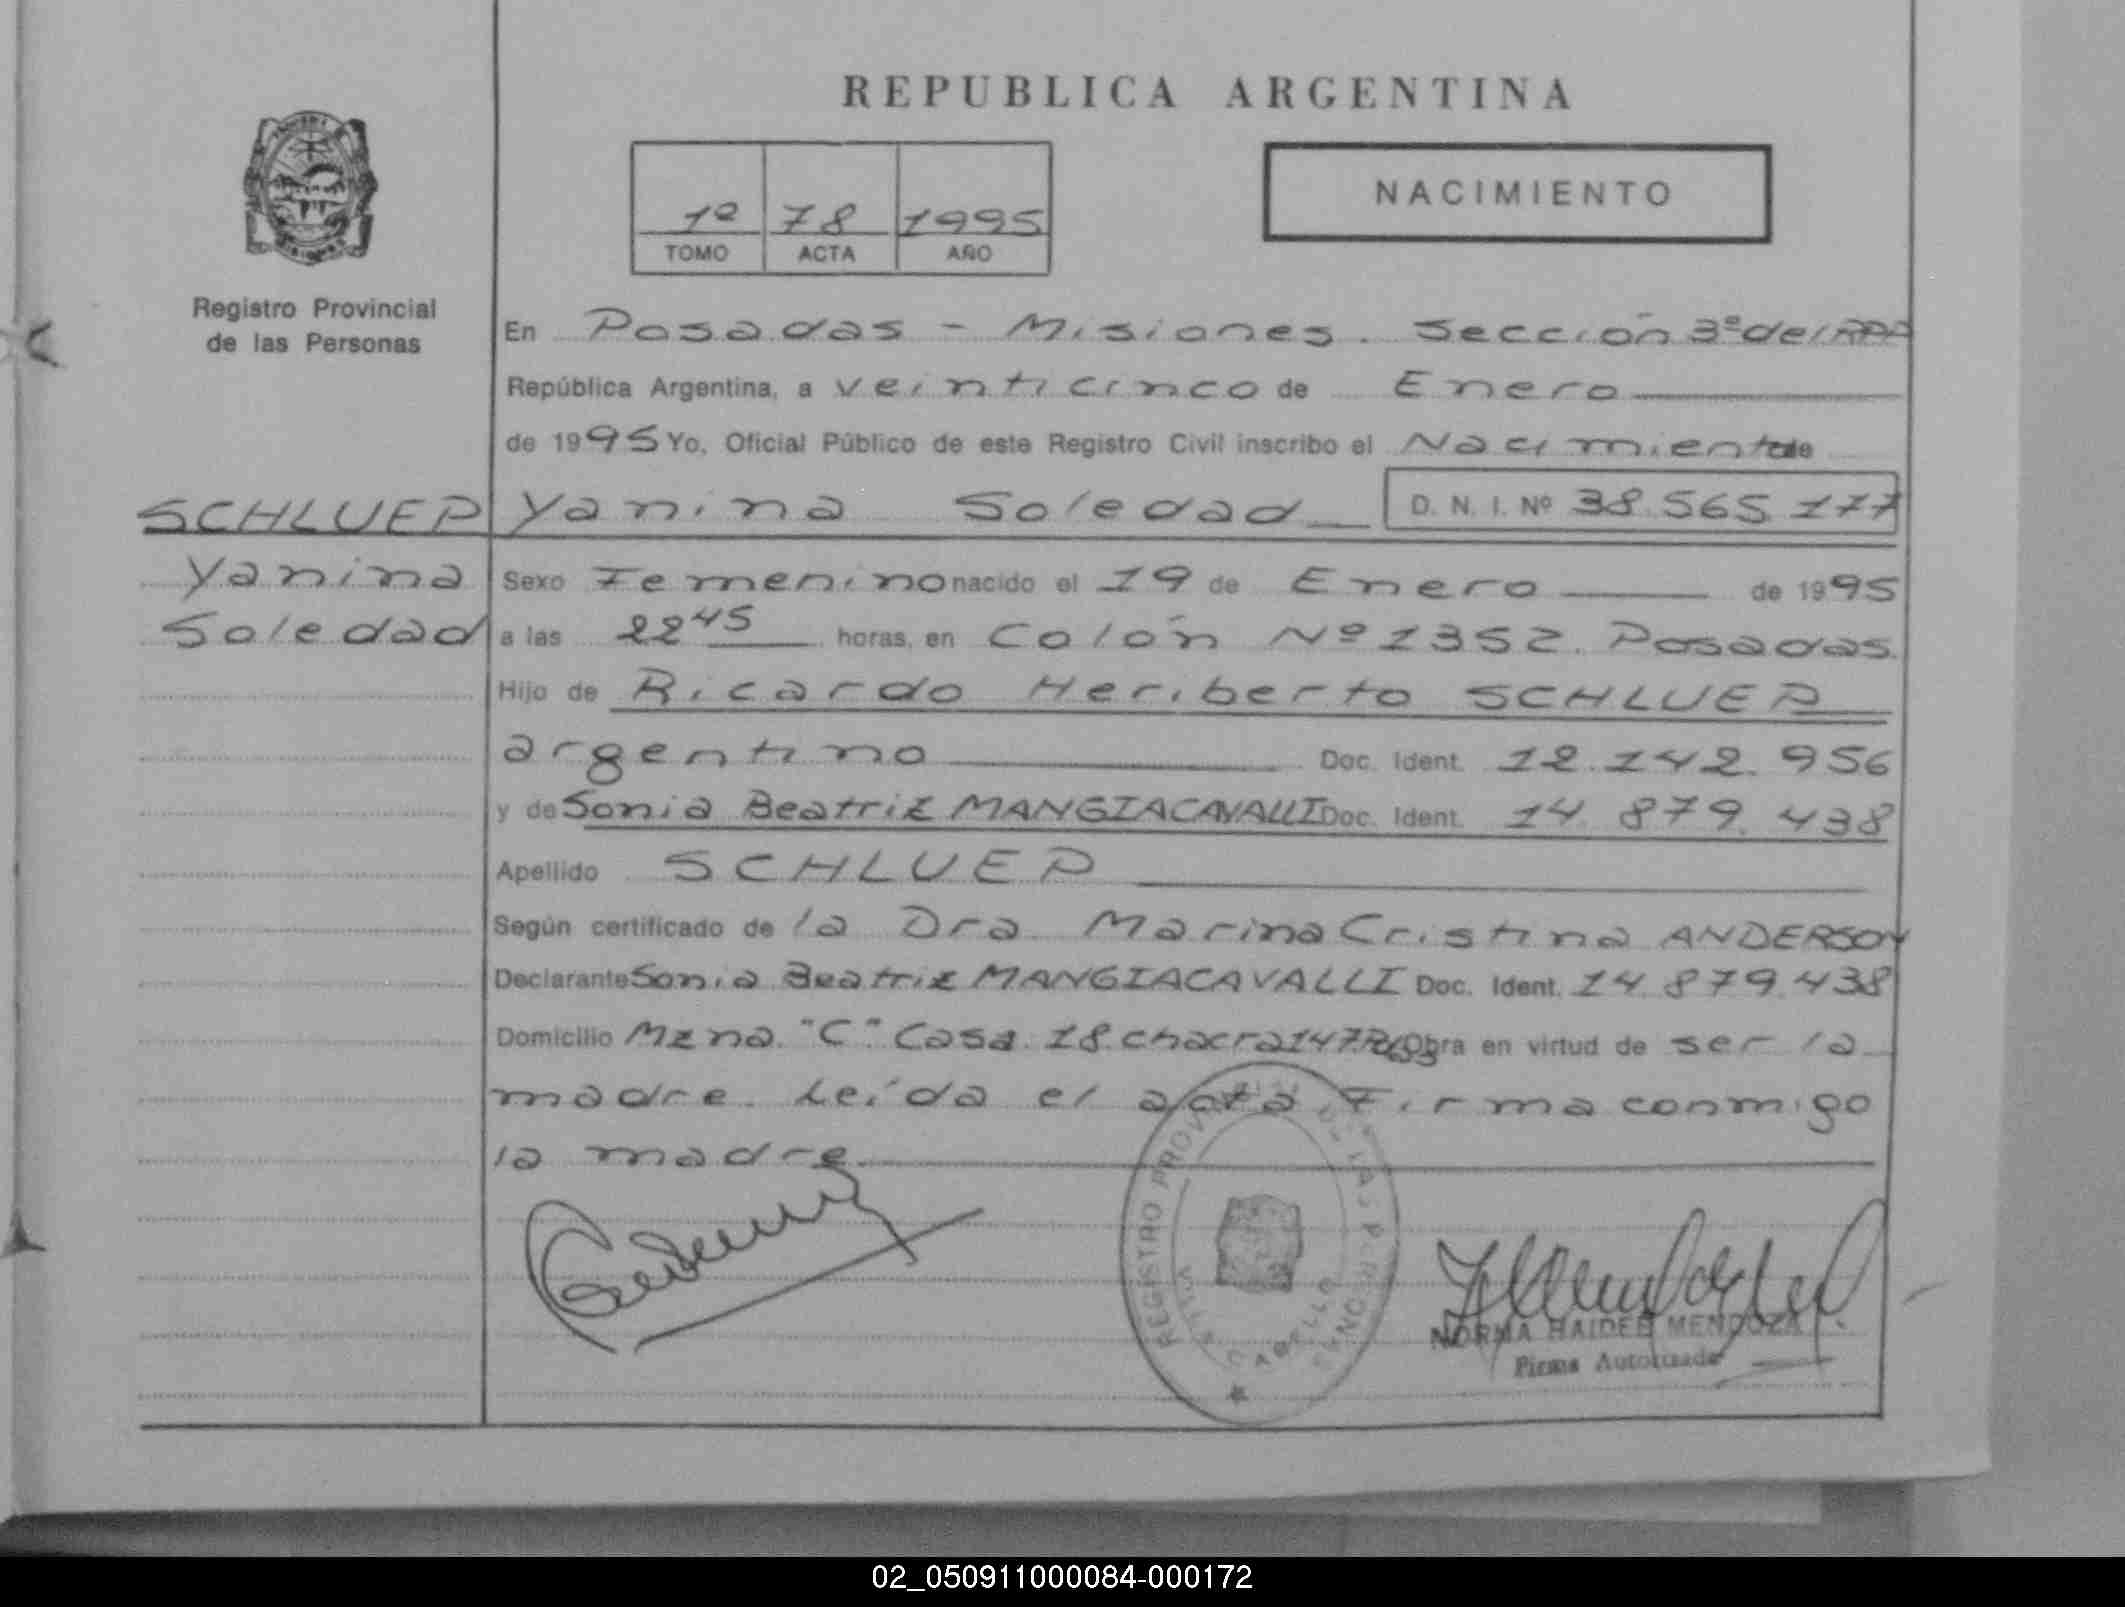 REPUBLICA ARGENTINA
1º 78 1995
TOMO ACTA AÑO
NACIMIENTO
Registro Provincial
de las Personas
En Posadas - Misiones. Sección 3º del RPP
República Argentina, a veinticinco de Enero
de 1995 Yo, Oficial Público de este Registro Civil inscribo el Nacimiento de
SCHLUEP Yanina Soledad D. N. I. Nº 38.565.177
Yanina
Soledad
Sexo Femenino nacido el 19 de Enero de 1995
a las 22 45 horas, en Colón Nº 1352. Posadas.
Hijo de Ricardo Heriberto SCHLUEP
argentino Doc. Ident. 12.142.956
y de Sonia Beatriz MANGIACAVALLI Doc. Ident. 14.879.438
Apellido SCHLUEP
Según certificado de la Dra. Marina Cristina ANDERSON
Declarante Sonia Beatriz MANGIACAVALLI Doc. Ident. 14.879.438
Domicilio Mzna. "C". Casa 18. chacra 147. Obra en virtud de ser la
madre. Leída el acta Firma conmigo
la madre
REGISTRO
NORMA HAIDEE MENDOZA
Firma Autorizada
02_050911000084-000172